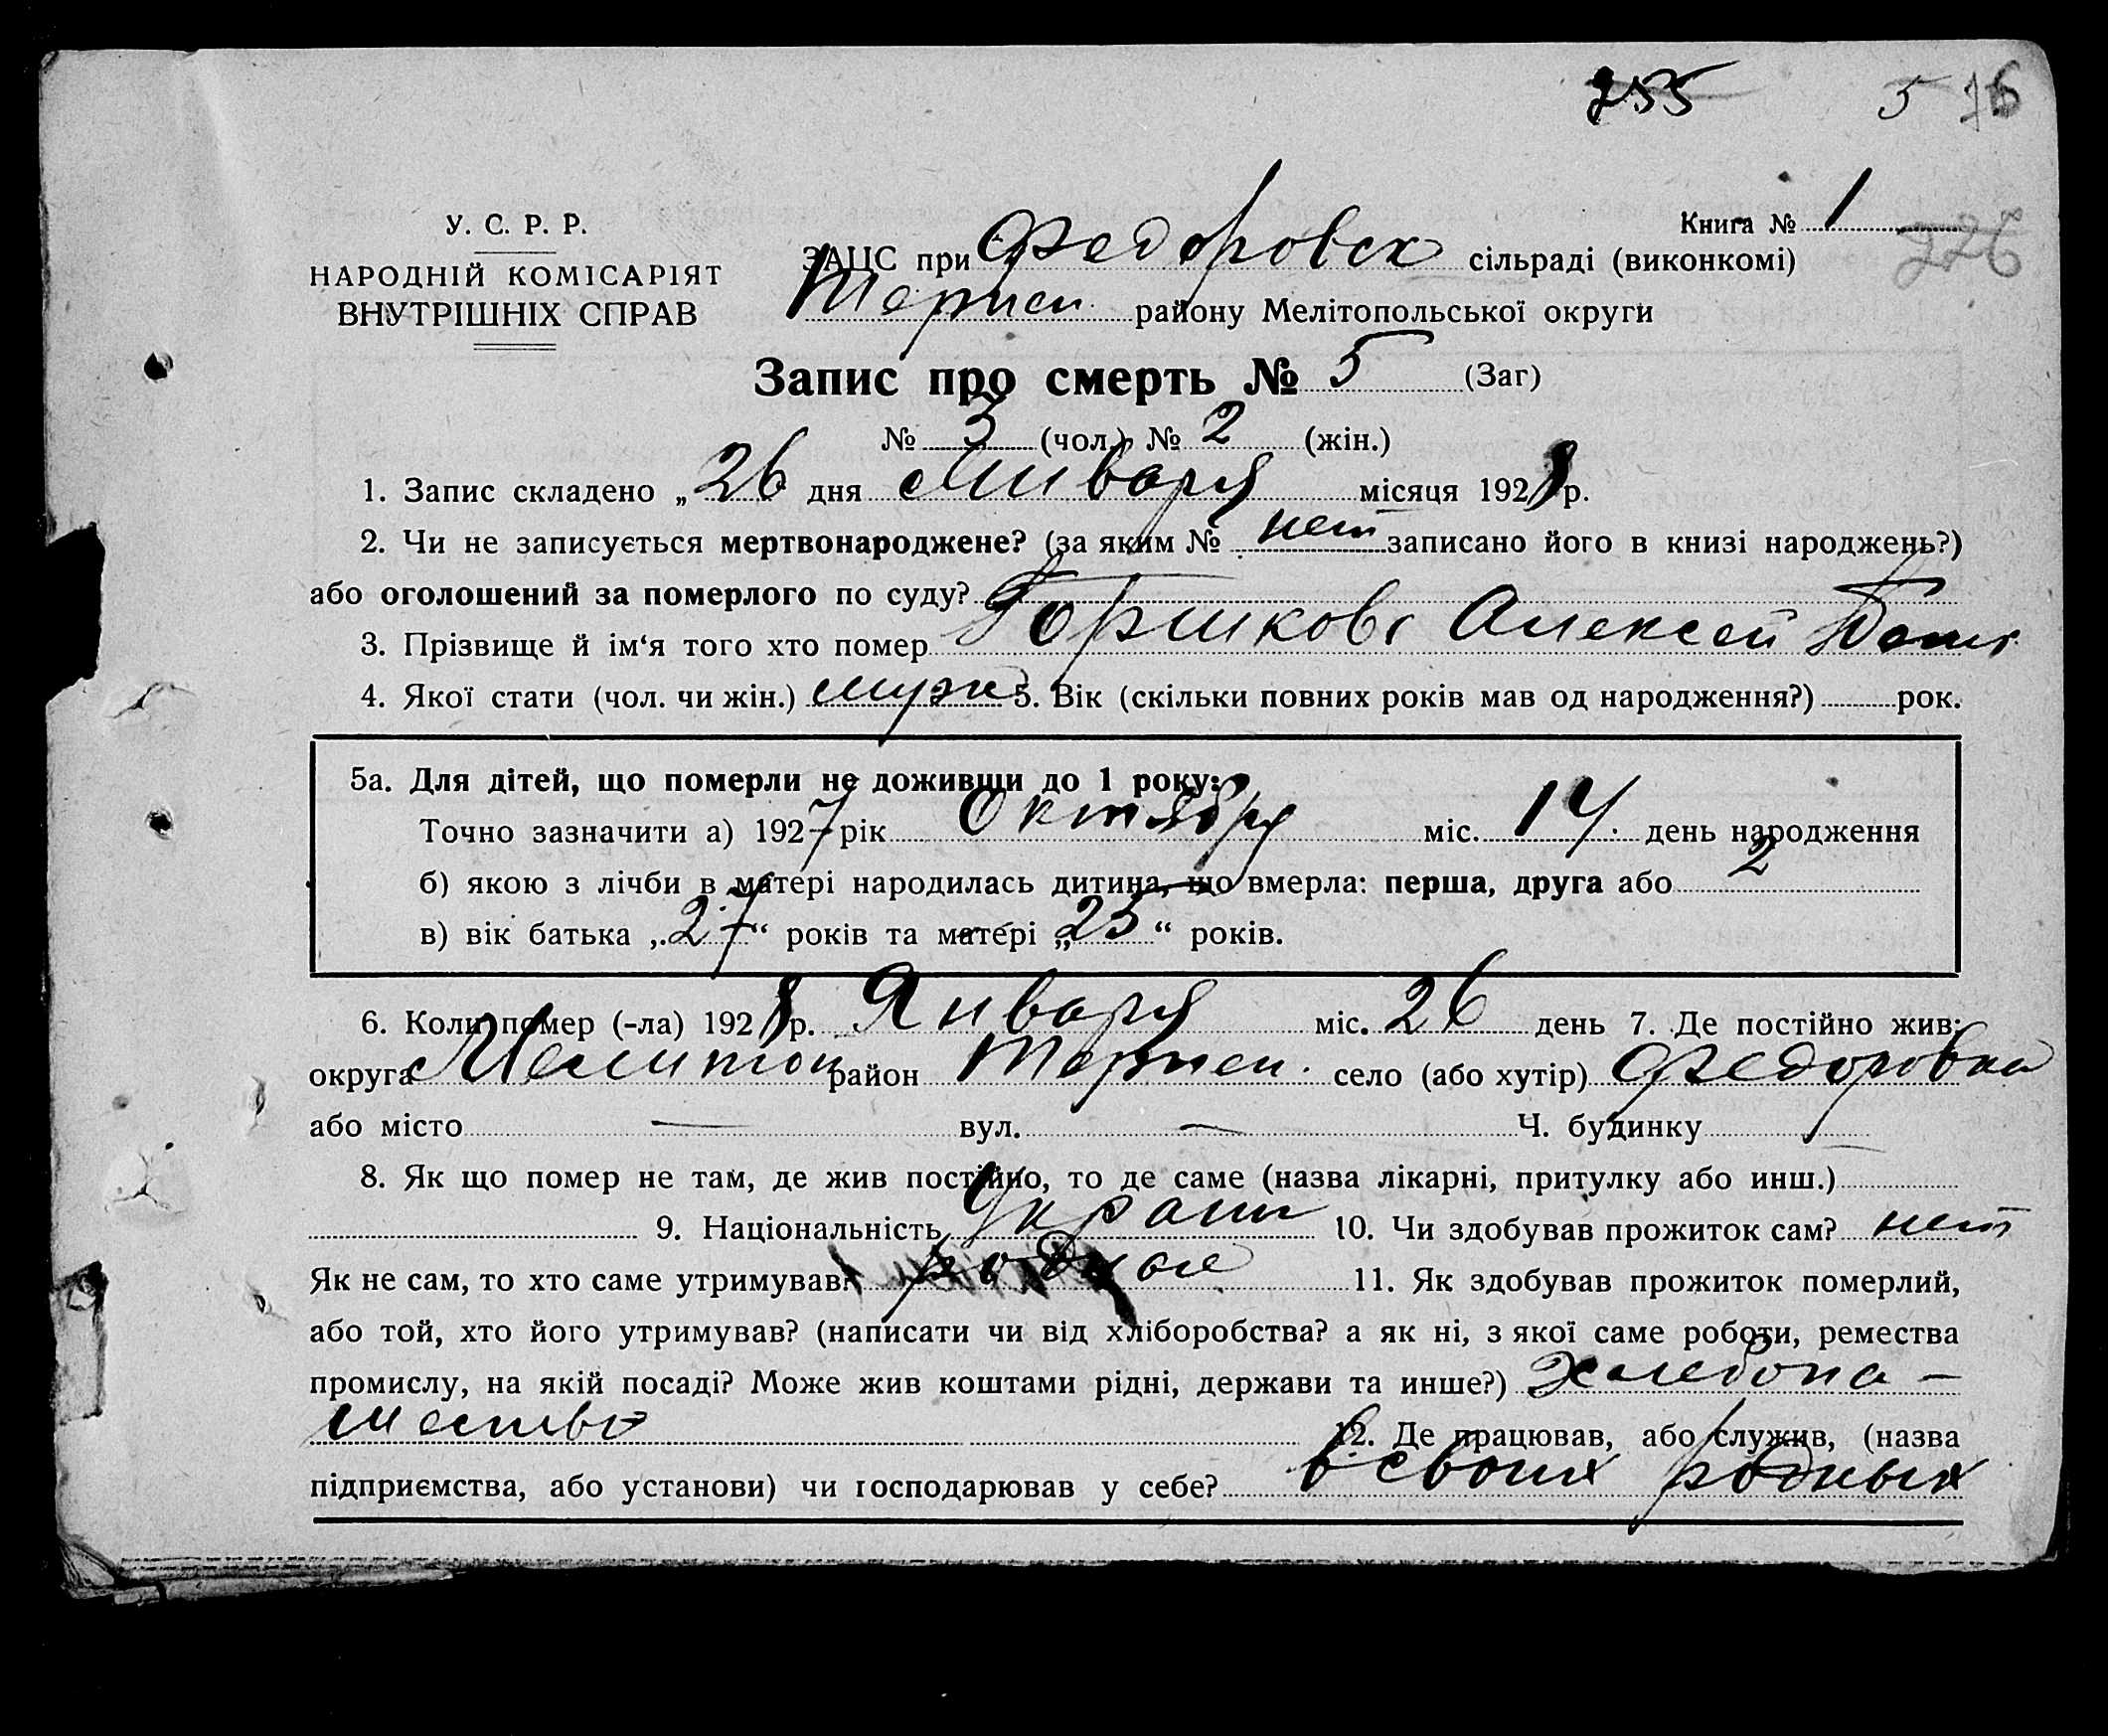 255 5 76
У. С. Р. Р.
НАРОДНІЙ КОМІСАРІЯТ
ВНУТРІШНІХ СПРАВ
Книга № 1
226
ЗАЦС при Федоровск сільраді (виконкомі)
Терпен району Мелітопольської округи
Запис про смерть № 5 (Заг)
№ 3 (чол.) № 2 (жін.)
1. Запис складено „ 26 дня Января місяця 1928 р.
2. Чи не записується мертвонароджене? (за яким № нет записано його в книзі народжень?)
або оголошений за померлого по суду?
3. Прізвище й ім‘я того хто помер Горшков Алексей
4. Якої стати (чол. чи жін.) муж 5. Вік (скільки повних років мав од народження?) рок.
5а. Для дітей, що померли не доживши до 1 року:
Точно зазначити а) 1927 рік Октября міс. 14. день народження
б) якою з лічби в матері народилась дитина, що вмерла: перша, друга або 2
в) вік батька „ 27 “ років та матері „ 25 “ років.
6. Коли помер (-ла) 1928 р. Января міс. 26 день 7. Де постійно жив:
округа Мелитоп район Терпен. село (або хутір) Федоровка
або місто — вул. — Ч. будинку
8. Як що помер не там, де жив постійно, то де саме (назва лікарні, притулку або инш.)
9. Національність Украин 10. Чи здобував прожиток сам? нет
Як не сам, то хто саме утримував? родные 11. Як здобував прожиток померлий,
або той, хто його утримував? (написати чи від хліборобства? а як ні, з якої саме роботи, ремества
промислу, на якій посаді? Може жив коштами рідні, держави та инше?) хлебопа-
шество 12. Де працював, або служив, (назва
підприємства, або установи) чи господарював у себе? в своих родных